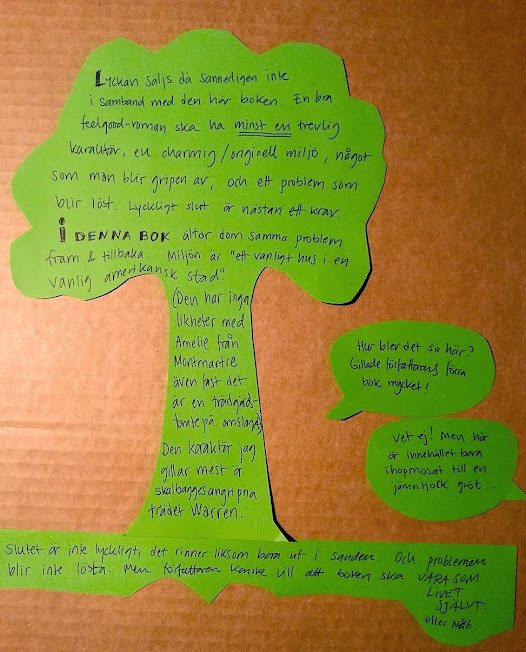 Lyckan säljs då sannerligen inte
i samband med den här boken. En bra
feelgood-roman ska ha minst en trevlig
karaktär, en charmig/originell miljö, något
som man blir gripen av, och ett problem som
blir löst. Lyckligt slut är nästan ett krav.
I DENNA BOK ältar dom samma problem
fram & tillbaka. Miljön är "ett vanligt hus i en
vanlig amerikansk stad".
(Den har inga
likheter med
Amelie från
Montmartre
även fast det
är en trädgårds-
tomte på omslaget)
Den karaktär jag
gillar mest är
skalbaggesangripna
trädet Warren.
Hur blev det så här?
Gillade författarens förra
bok mycket!
Vet ej! Men här
är innehållet bara
ihopmosat till en
jämntjock gröt...
Slutet är inte lyckligt, det rinner liksom bara ut i sanden. Och problemen
blir inte lösta. Men författaren kanske vill att boken ska VARA SOM
LIVET
SJÄLVT.
eller nåt.